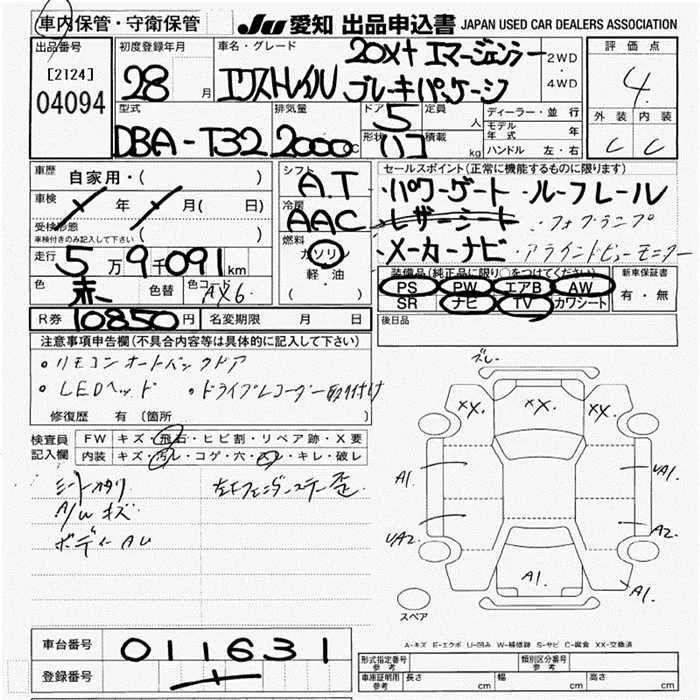 車内保管・守衛保管
JU 愛知 出品申込書 JAPAN USED CAR DEALERS ASSOCIATION
出品番号
[2124]
04094
初度登録年月
28 月
車名・グレード
エクストレイル
20X+ エマージェンシー
ブレーキパッケージ
2WD
・
4WD
評価点
4
外装 内装
C C
型式
DBA-T32
排気量
2000 cc
ドア 5
定員 人
形状 ハコ
積載 kg
ディーラー・並行
モデル年式 年
ハンドル 左・右
車歴
自家用・( )
車検 年 月( 日)
受検形態
車検付きのみ記入して下さい ( )
走行 5万9千091km
色 赤 色替 色コード AX6
シフト
A.T
冷房
AAC
燃料
ガソリン
・
軽・油
( )
セールスポイント(正常に機能するものに限ります)
・パワーゲート ・ルーフレール
・レザーシート ・フォグランプ
・メーカーナビ ・アラインドビューモニター
装備品(純正品に限り○をつけてください)
PS PW エアB AW
SR ナビ TV カワシート
新車保証書
有・無
後日品
R券 10850円 名変期限 月 日
注意事項申告欄(不具合内容等は具体的に記入して下さい)
・リモコンオートバックドア
・LEDヘッド ・ドライブレコーダー取り付け
修復歴 有 〔箇所 〕
検査員
記入欄
FW キズ・飛石・ヒビ割・リペア跡・X要
内装 キズ・汚レ・コゲ・穴・スレ・キレ・破レ
シートスワリ 左下フェンダーステー歪
A/W キズ
ボディーAU
ズレ
XX. XX. XX.
A1. UA1.
UA2. A2.
A1. A1.
スペア
A-キズ E-エクボ U-凹み W-補修跡 S-サビ C-腐食 XX-交換済
車台番号 011631
登録番号
形式指定番号
参考
類別区分番号
参考
車庫証明用
参考
長さ cm 幅 cm 高さ cm